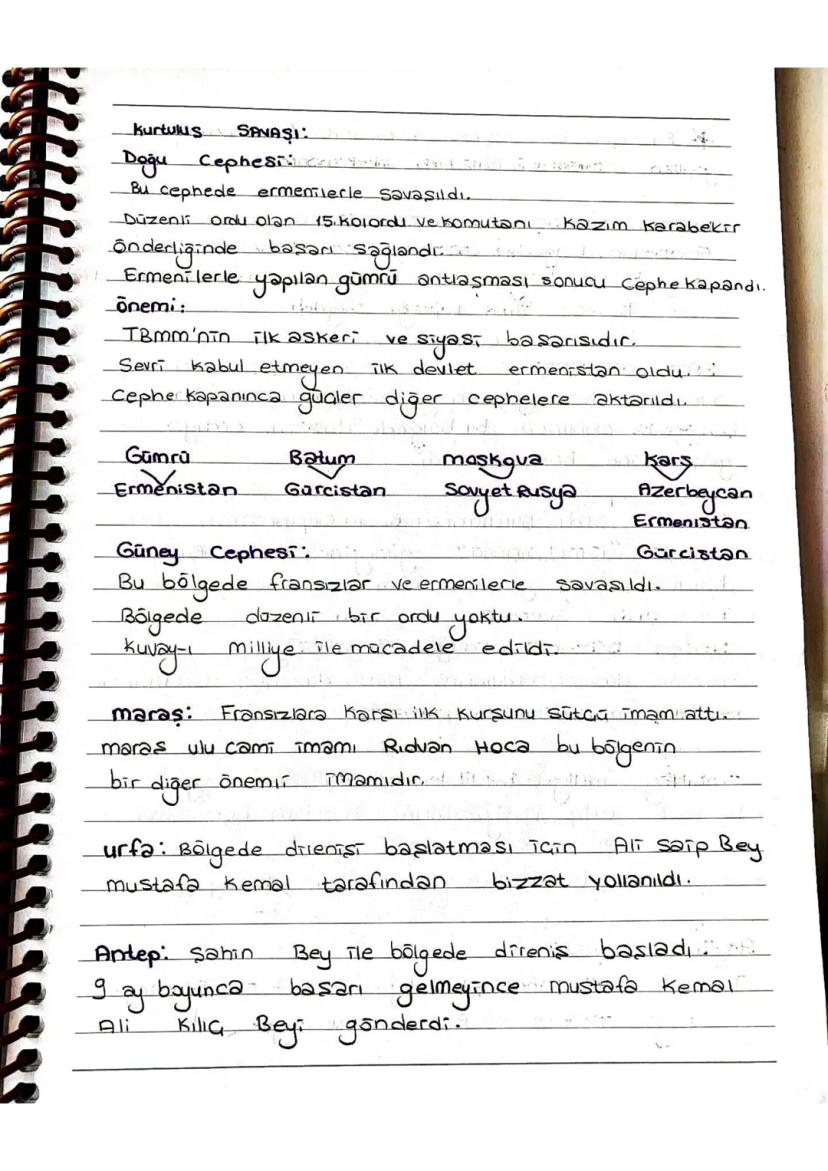 Kurtuluş SAVAŞI:
Doğu Cephesi:
Bu cephede ermenilerle savaşıldı.
Düzenli ordu olan 15.kolordu ve komutanı Kazım Karabekir
önderliğinde başarı sağlandı.
Ermenilerle yapılan gümrü antlaşması sonucu Cephe kapandı.
önemi:
TBMM'nin ilk askeri ve siyasi başarısıdır.
Sevri kabul etmeyen ilk devlet ermenistan oldu.
Cephe kapanınca güçler diğer cephelere aktarıldı.
Gümrü Batum moskova Kars
Ermenistan Gürcistan Sovyet Rusya Azerbeycan
Ermenistan
Güney Cephesi: Gürcistan
Bu bölgede fransızlar ve ermenilerle savaşıldı.
Bölgede düzenli bir ordu yoktu.
Kuvay-ı milliye ile mücadele edildi.
maraş: Fransızlara Karşı ilk kurşunu sütçü imam attı.
maraş ulu cami imamı Rıdvan Hoca bu bölgenin
bir diğer önemli imamıdır.
urfa: Bölgede direnişi başlatması için Ali Saip Bey
mustafa Kemal tarafından bizzat yollanıldı.
Antep: şahin Bey ile bölgede direniş başladı.
9 ay boyunca başarı gelmeyince mustafa Kemal
Ali Kılıç Beyi gönderdi.